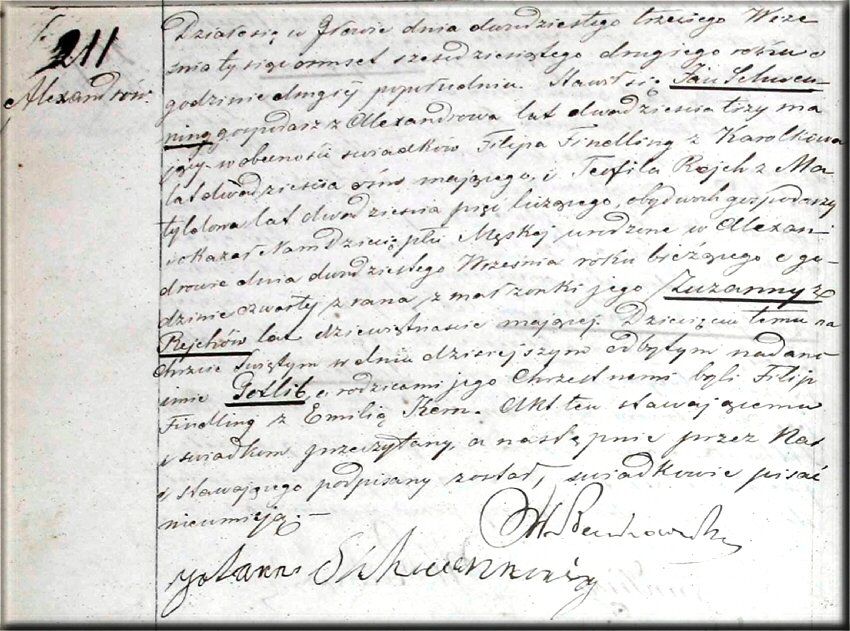 211
Alexandrów.
Działo się w Iłowie dnia dwudziestego trzeciego Wrze
śnia tysiąc ośmset szesédziesiątego drugiego roku o
godzinie drugiéj popołudniu. Stawił się Jan Schwen
ning gospodarz z Alexandrowa lat dwadzieścia trzy ma
jący w obecności świadków Filipa Findling z Karolkowa
lat dwadzieścia ośm mającego, i Teofila Rejch z Ma
tyldowa lat dwadzieścia pięć liczącego, obydwóch gospodarzy
i okazał Nam dziecię płci Męskiej urodzone w Alexan
drowie dnia dwudziestego Września roku bieżącego o go-
dzinie czwartéj z rana z małżonki jego Zuzanny z
Rejchów lat dziewiętnaście mającej. Dziecięciu temu na
Chrzcie Świętym w dniu dzisiejszym odbytym nadano
imie Gotlib, a rodzicami jego Chrzestnemi byli Filip
Findling z Emilią Kern. Akt ten stawającemu
i świadkom przeczytany, a następnie przez Nas
i stawającego podpisany został, świadkowie pisać
nieumieją.-
Johann